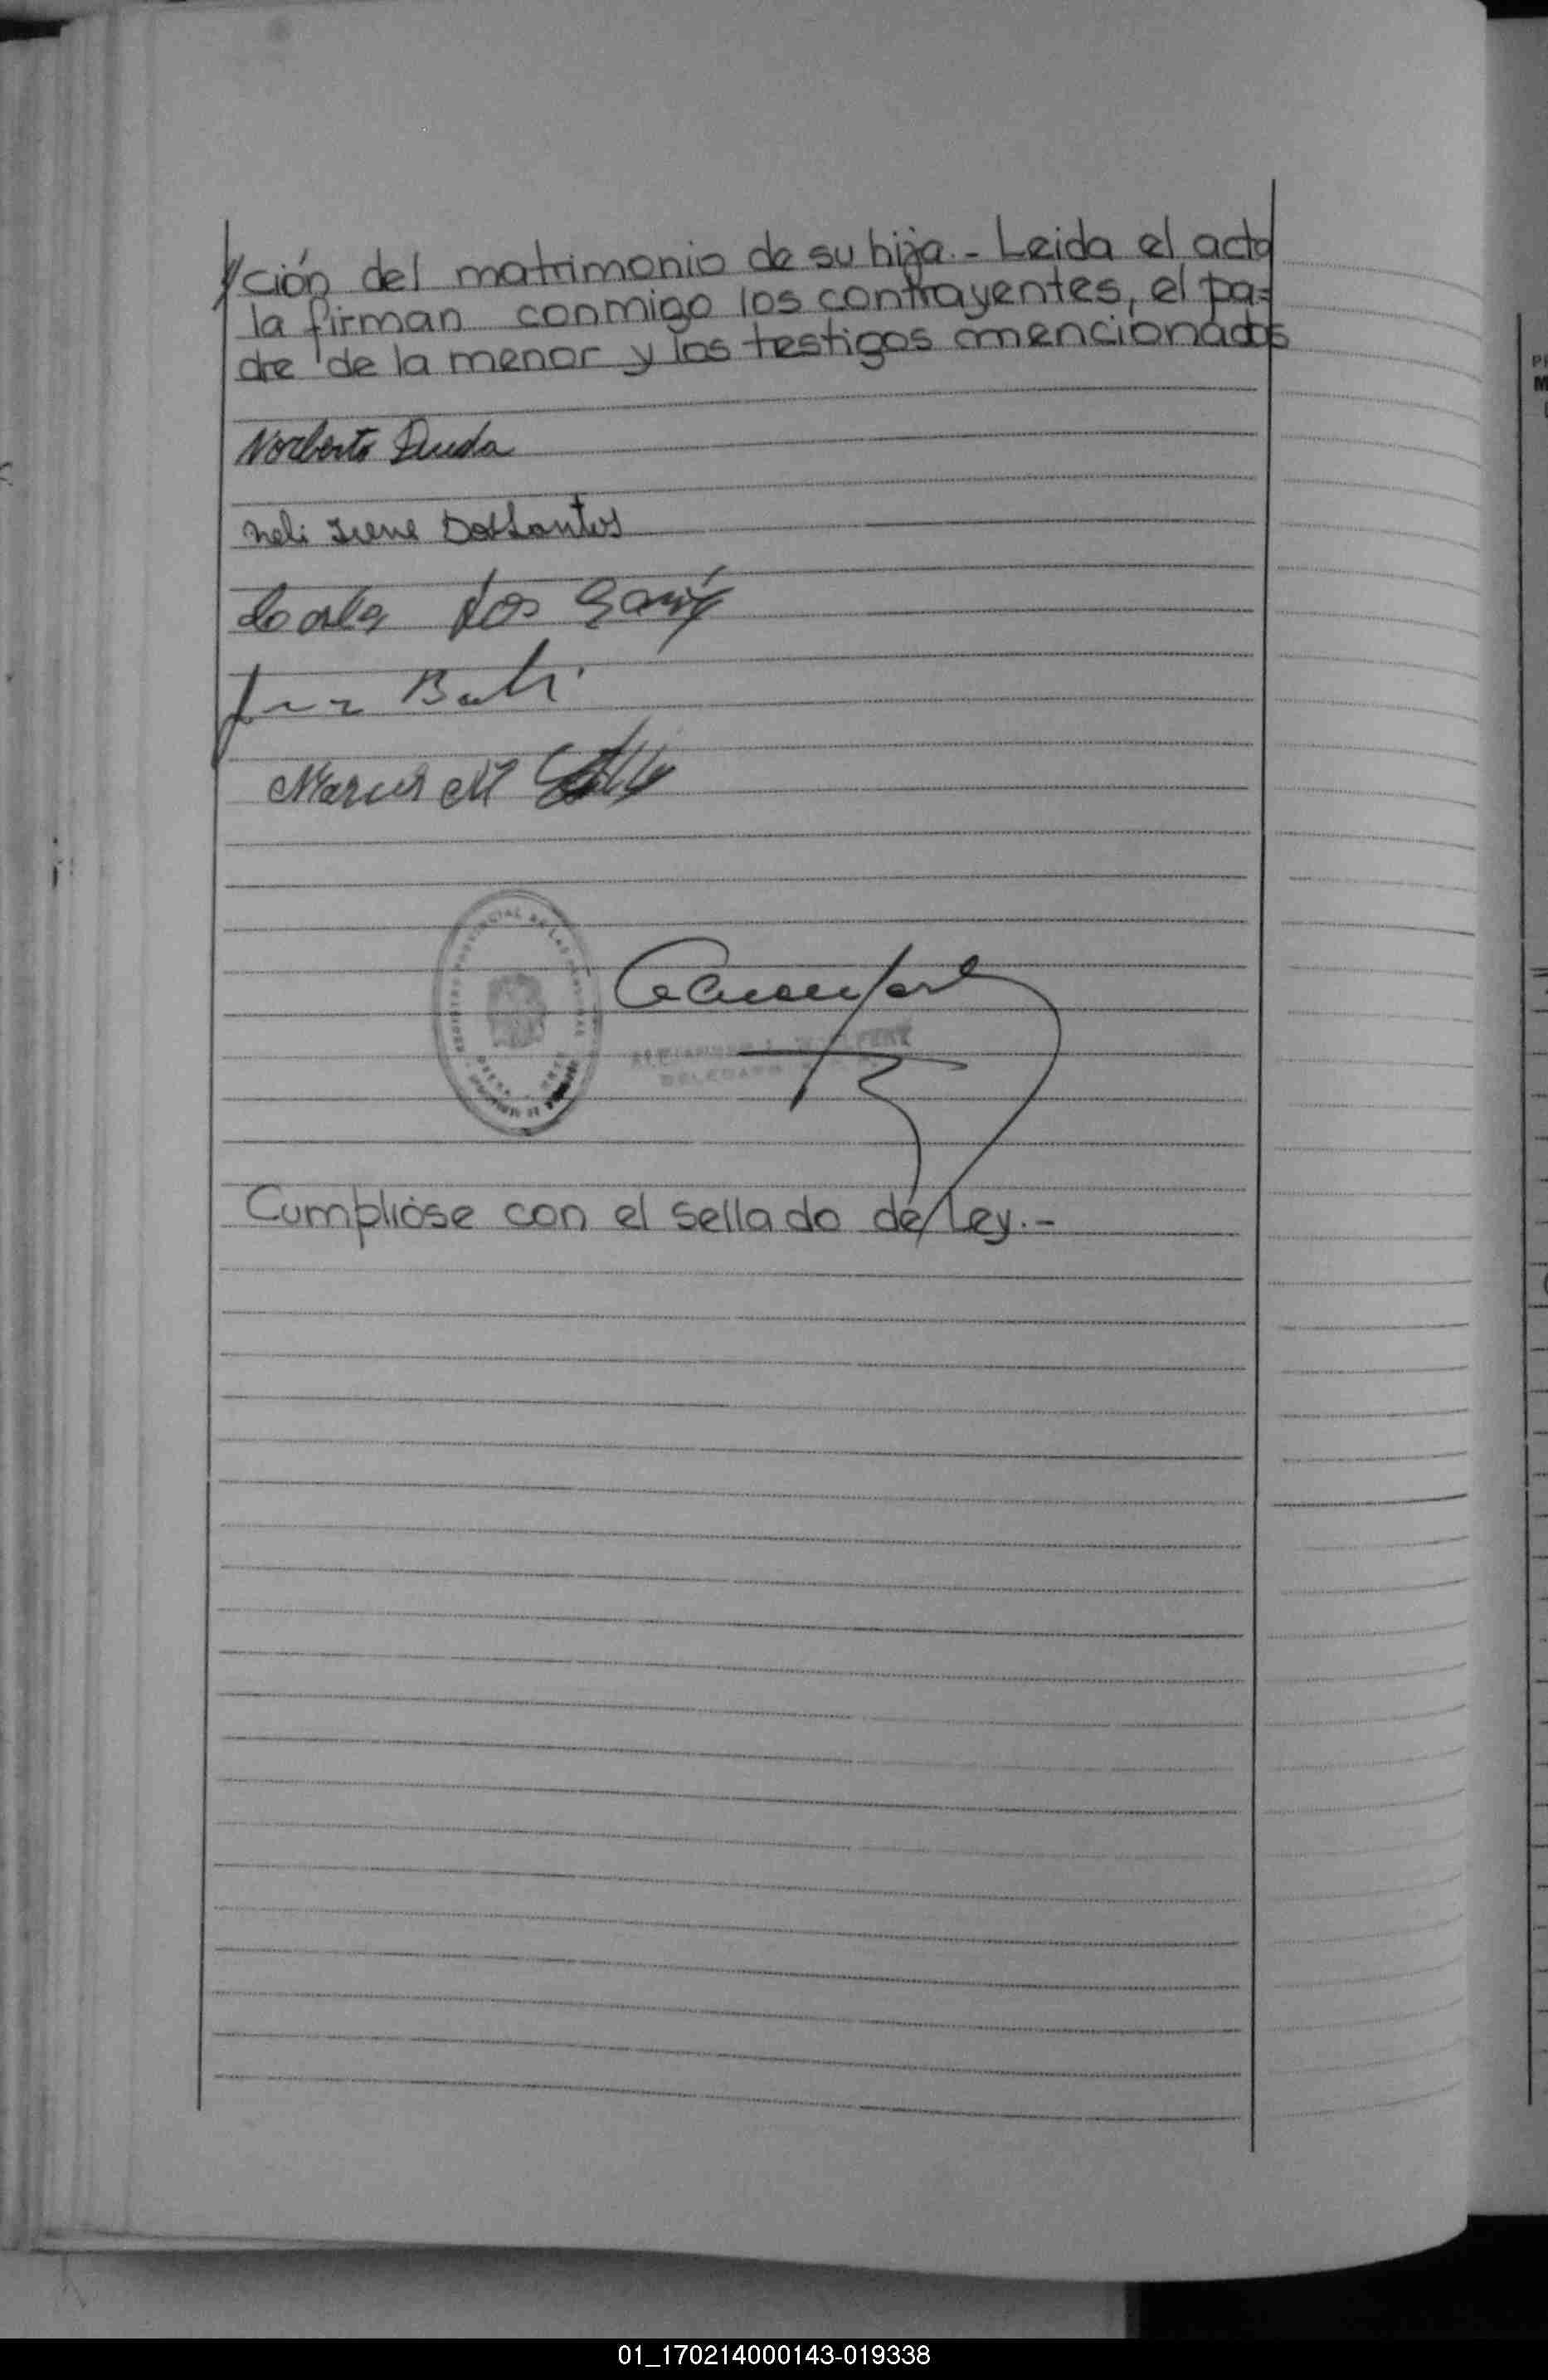 //ción del matrimonio de su hija.- Leida el acta
la firman conmigo los contrayentes, el pa=
dre de la menor y los testigos mencionados
Norberto Duda
Neli Irene DosSantos
dos
Marcos M
REGISTRO PROVINCIAL DE LAS PERSONAS
DELEGADO
Cumplióse con el sellado de Ley.-
01_170214000143-019338